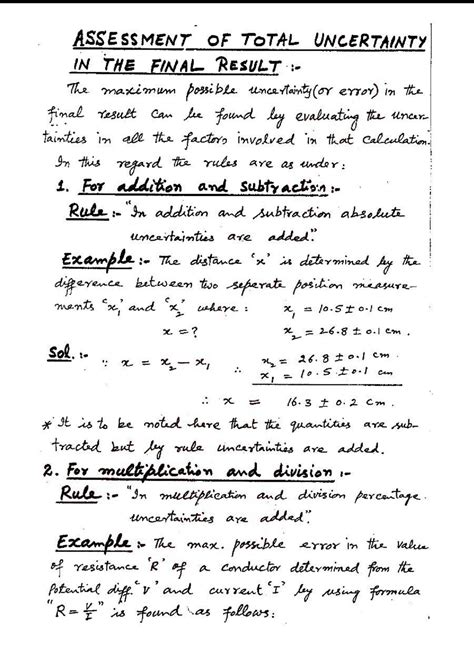 ASSESSMENT OF TOTAL UNCERTAINTY
IN THE FINAL RESULT :-
The maximum possible uncertainty (or error) in the
final result can be found by evaluating the uncer-
tainties in all the factors involved in that calculation.
In this regard the rules are as under:
1. For addition and subtraction:-
Rule:- "In addition and subtraction absolute
uncertainties are added."
Example:- The distance 'x' is determined by the
difference between two seperate position measure-
ments 'x₁' and 'x₂' where : x₁ = 10.5 ± 0.1 cm
x = ? x₂ = 26.8 ± 0.1 cm.
Sol. :- ∵ x = x₂ - x₁ ∴ x₂ = 26.8 ± 0.1 cm
x₁ = 10.5 ± 0.1 cm
∴ x = 16.3 ± 0.2 cm.
* It is to be noted here that the quantities are sub-
tracted but by rule uncertainties are added.
2. For multiplication and division :-
Rule :- "In multiplication and division percentage
uncertainties are added".
Example :- The max. possible error in the value
of resistance 'R' of a conductor determined from the
Potential diff. 'V' and current 'I' by using formula
"R = V/I" is found as follows: